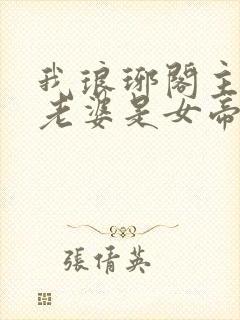 我琅琊閣主
老婆是女帝
張倩英